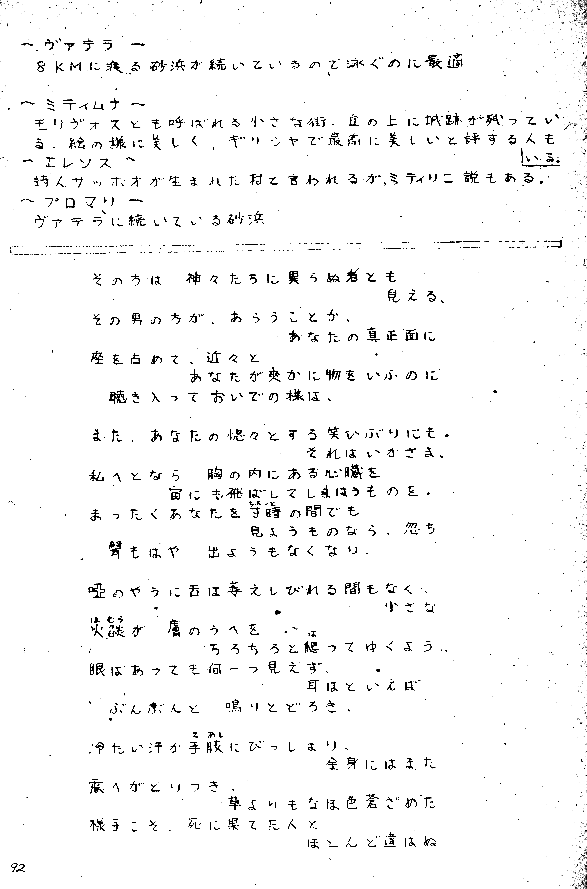 〜 ヴァテラ 〜
8KMに渡る砂浜が続いているので泳ぐのに最適
〜 ミティムナ 〜
モリヴォスとも呼ばれる小さな街。丘の上に城跡が残ってい
る。絵の様に美しく、ギリシャで最高に美しいと評する人も
いる。
〜 エレソス 〜
詩人サッホオが生まれた村と言われるが、ミティリニ説もある。
〜 プロマリ 〜
ヴァテラに続いている砂浜
その方は 神々たちに異らぬ者とも
見える、
その男の方が、あらうことか、
あなたの真正面に
座を占めて、近々と
あなたが爽かに物をいふのに
聴き入っておいでの様は、
また、あなたの惚々とする笑ひぶりにも。
それはいかさま、
私へとなら 胸の内にある心臓を
宙にも飛ばしてしまはうものを。
まったくあなたを寸時の間でも
見ようものなら、忽ち
聲もはや 出ようもなくなり、
唖のやうに舌は萎えしびれる間もなく、
小さな
火焔が 膚のうへを
ちろちろと這ってゆくよう、
眼はあっても何一つ見えず、
耳はといえば
ぶんぶんと 鳴りとどろき、
冷たい汗が手肢にびっしょり、
全身にはまた
震へがとりつき、
草よりもなほ色蒼ざめた
様子こそ、死に果てた人と
ほとんど違はぬ
92